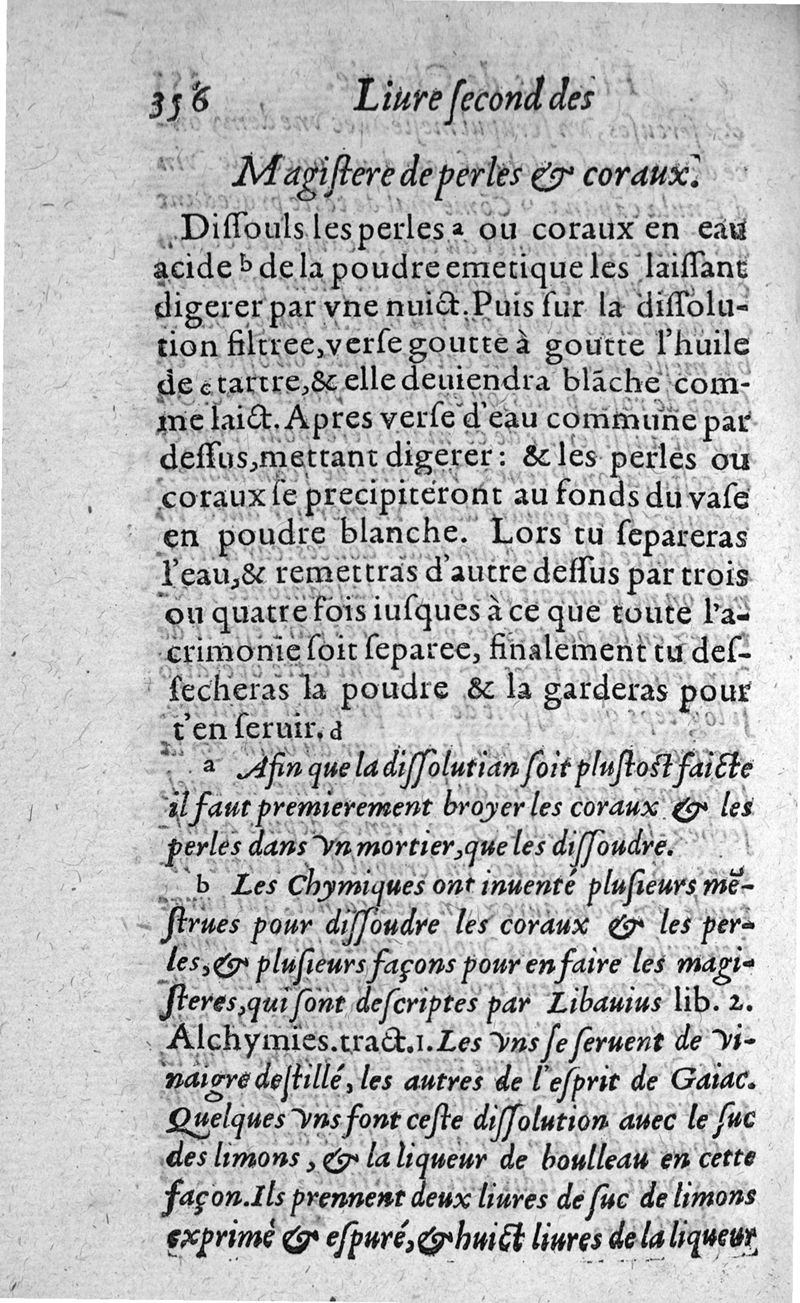 356 Liure ſecond des
Magiſtere de perles & coraux.
Diſſouls les perles a ou coraux en eau
acide b de la poudre emetique les laiſſant
digerer par vne nuict. Puis ſur la diſſolu-
tion filtree, verſe goutte à goutte l'huile
de c tartre, & elle deuiendra blãche com-
me laict. Apres verſe d'eau commune par
deſſus, mettant digerer: & les perles ou
coraux ſe precipiteront au fonds du vaſe
en poudre blanche. Lors tu ſepareras
l'eau, & remettras d'autre deſſus par trois
ou quatre fois iuſques à ce que toute l'a-
crimonie ſoit ſeparee, finalement tu deſ-
ſecheras la poudre & la garderas pour
t'en ſeruir. d
a Afin que la diſſolutian ſoit pluſtoſt faicte
il faut premierement broyer les coraux & les
perles dans vn mortier, que les diſſoudre.
b Les Chymiques ont inuenté pluſieurs mẽ-
ſtrues pour diſſoudre les coraux & les per-
les, & pluſieurs façons pour en faire les magi-
ſteres, qui ſont deſcriptes par Libauius lib. 2.
Alchymies. tract. 1. Les vns ſe ſeruent de vi-
naigre deſtillé, les autres de l'eſprit de Gaiac.
Quelques vns font ceſte diſſolution auec le ſuc
des limons, & la liqueur de boulleau en cette
façon. Ils prennent deux liures de ſuc de limons
exprimé & eſpuré, & huict liures de la liqueur